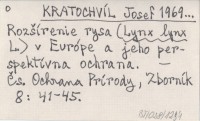 o KRATOCHVÍL Josef 1969...
Rozšírenie rysa (Lynx lynx
L.) v Európe a jeho per-
spektívna ochrana.
Čs. Ochrana Prírody, Zborník
8: 41-45.